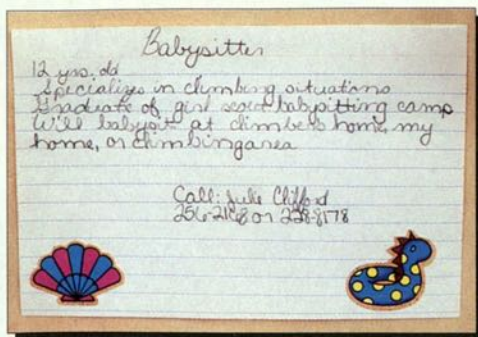 Babysitter
12 yrs. old
Specializes in climbing situations
Graduate of girl scout babysitting camp
Will babysit at climbers home, my
home, or climbing area
Call: Julie Clifford
or 228-8178